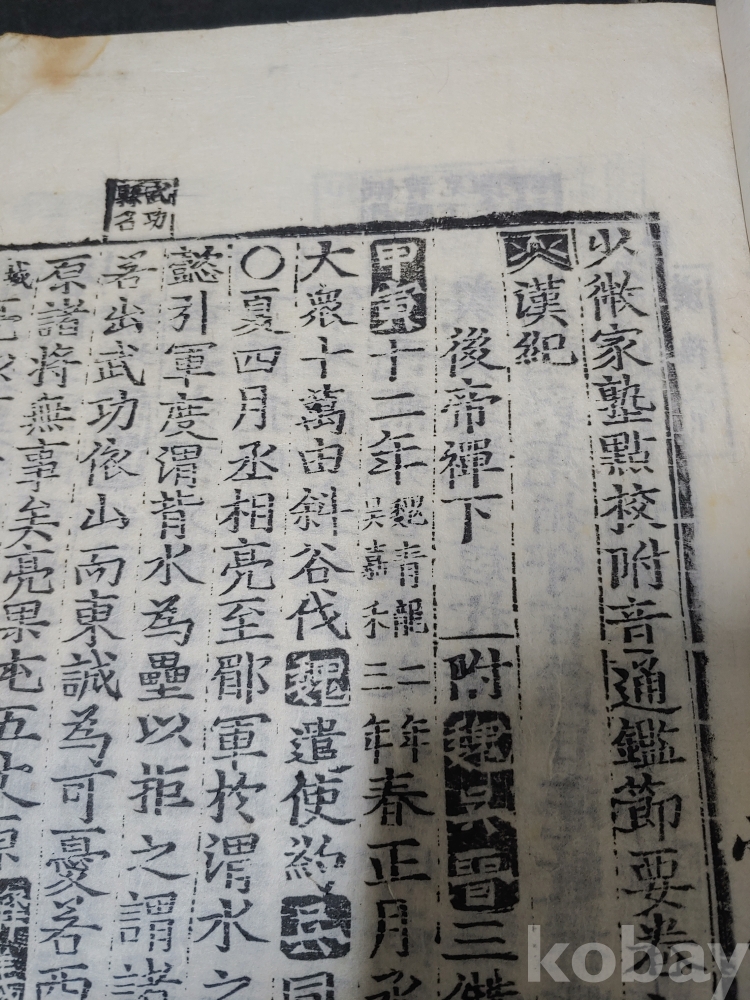 少微家塾點校附音通鑑節要卷
漢紀
後帝禪下 附魏吳晉三僭
甲寅十二年魏青龍二年吳嘉禾三年春正月丞
大衆十萬由斜谷伐魏遣使約吳同
○夏四月丞相亮至郿軍於渭水之
懿引軍度渭背水為壘以拒之謂諸
武功縣名
若出武功依山而東誠為可憂若西
原諸將無事矣亮果屯五丈原
kobay